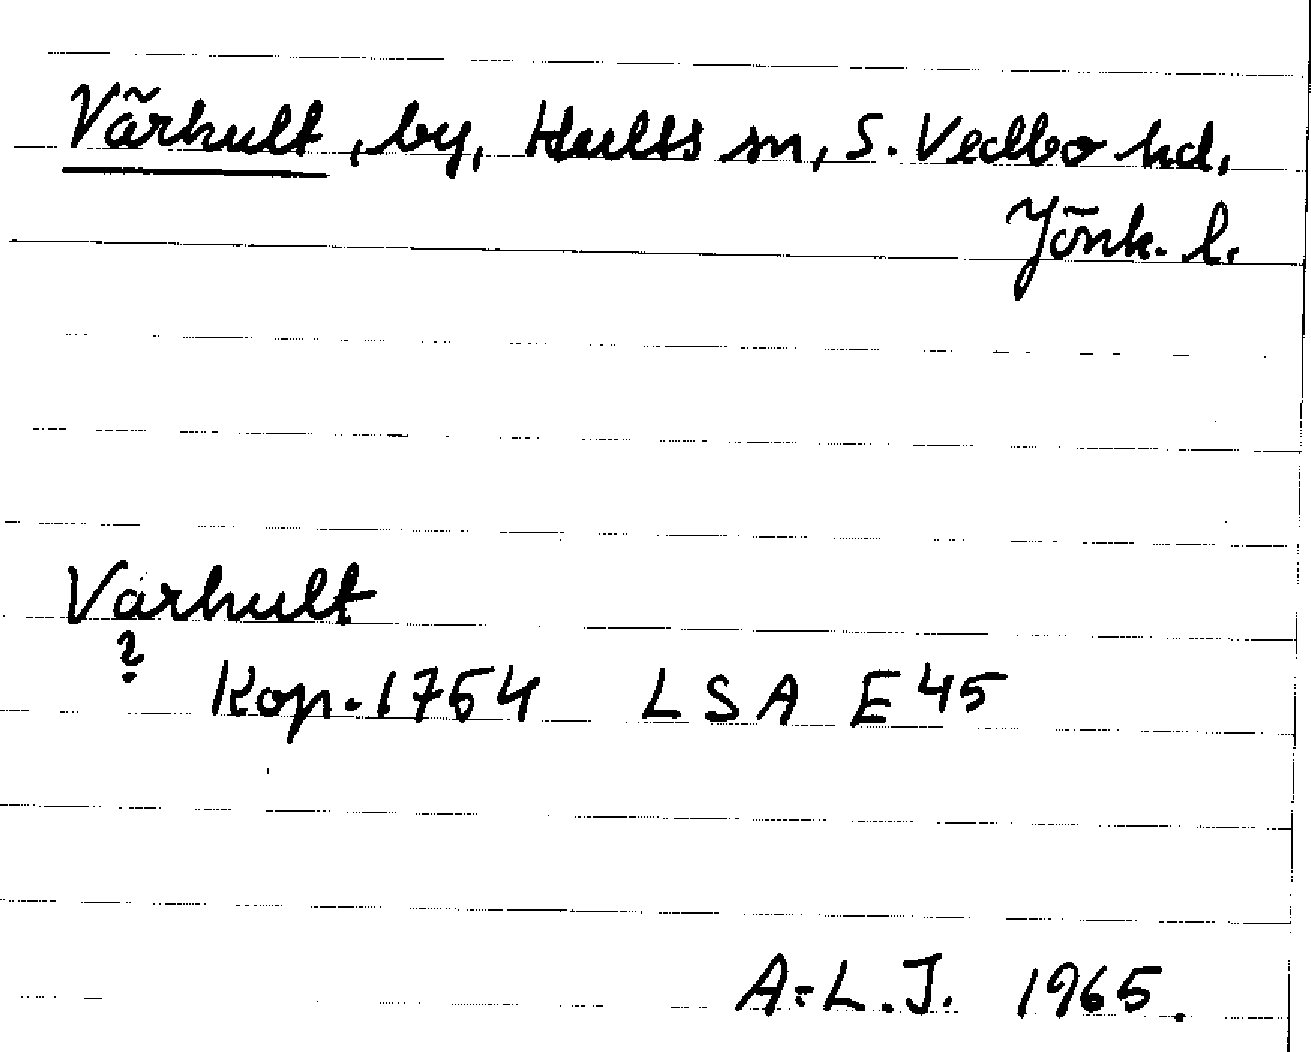 Värhult, by, Hults sn, S. Vedbo hd,
Jönk. l.
Varhult
?
Kop. 1764 LSA E45
A-L.J. 1965.